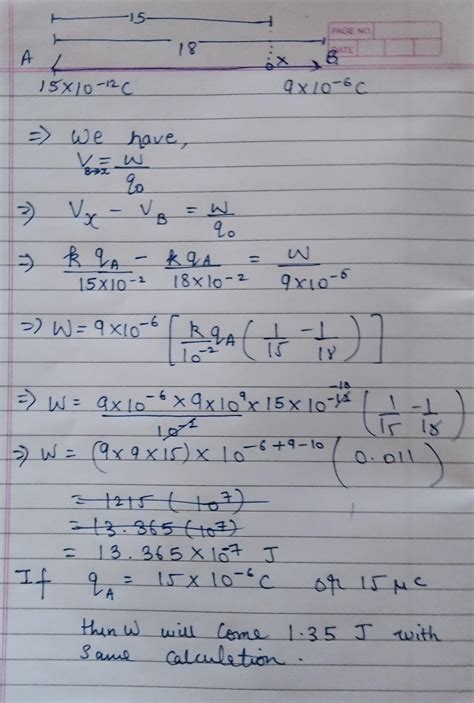 15
PAGE NO.
18
DATE
A x B
15×10⁻¹²C 9×10⁻⁶C
⇒ We have,
V_{B→x} = W/q₀
⇒ V_x − V_B = W/q₀
⇒ k q_A/15×10⁻² − k q_A/18×10⁻² = W/9×10⁻⁶
⇒ W = 9×10⁻⁶ [k/10⁻² q_A (1/15 − 1/18)]
⇒ W = 9×10⁻⁶ × 9×10⁹ × 15×10⁻¹⁰/10⁻² (1/15 − 1/18)
⇒ W = (9×9×15) × 10⁻⁶⁺⁹⁻¹⁰ (0.011)
= 1215 (10⁷)
= 13.365 (10⁷)
= 13.365 × 10⁷ J
If q_A = 15×10⁻⁶C or 15 μc
then W will come 1.35 J with
same calculetion.